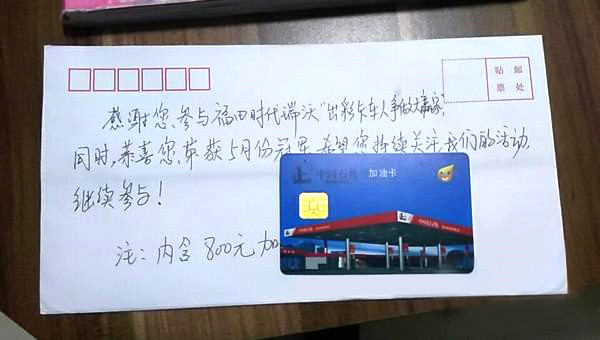 贴 邮
票 处
感谢您参与福田时代瑞沃"出彩卡车人争做大赢家",
同时,恭喜您荣获5月份冠军,希望您持续关注我们的活动,
继续参与!
注:内含800元加
中国石化 加油卡
中国石化